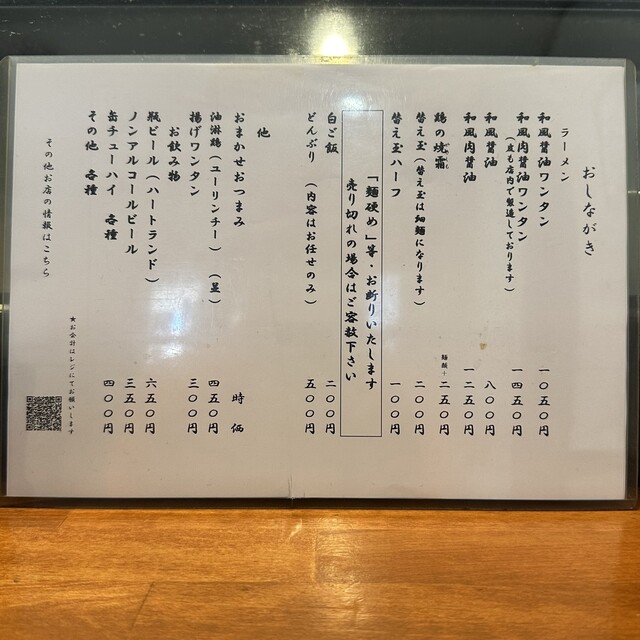 おしながき
ラーメン
和風醤油ワンタン 一〇五〇円
和風肉醤油ワンタン 一四五〇円
(皮も店内で製造しております)
和風醤油 八〇〇円
和風肉醤油 一二五〇円
鶏の焼霜 麺類+二五〇円
替え玉(替え玉は細麺になります) 二〇〇円
替え玉ハーフ 一〇〇円
「麺硬め」等・お断りいたします
売り切れの場合はご容赦下さい
白ご飯 二〇〇円
どんぶり (内容はお任せのみ) 五〇〇円
他
おまかせおつまみ 時価
油淋鶏(ユーリンチー) 四五〇円
揚げワンタン 三〇〇円
お飲み物
瓶ビール(ハートランド) 六五〇円
ノンアルコールビール 三五〇円
缶チューハイ 各種 四〇〇円
その他 各種
★お会計はレジにてお願いします
その他お店の情報はこちら